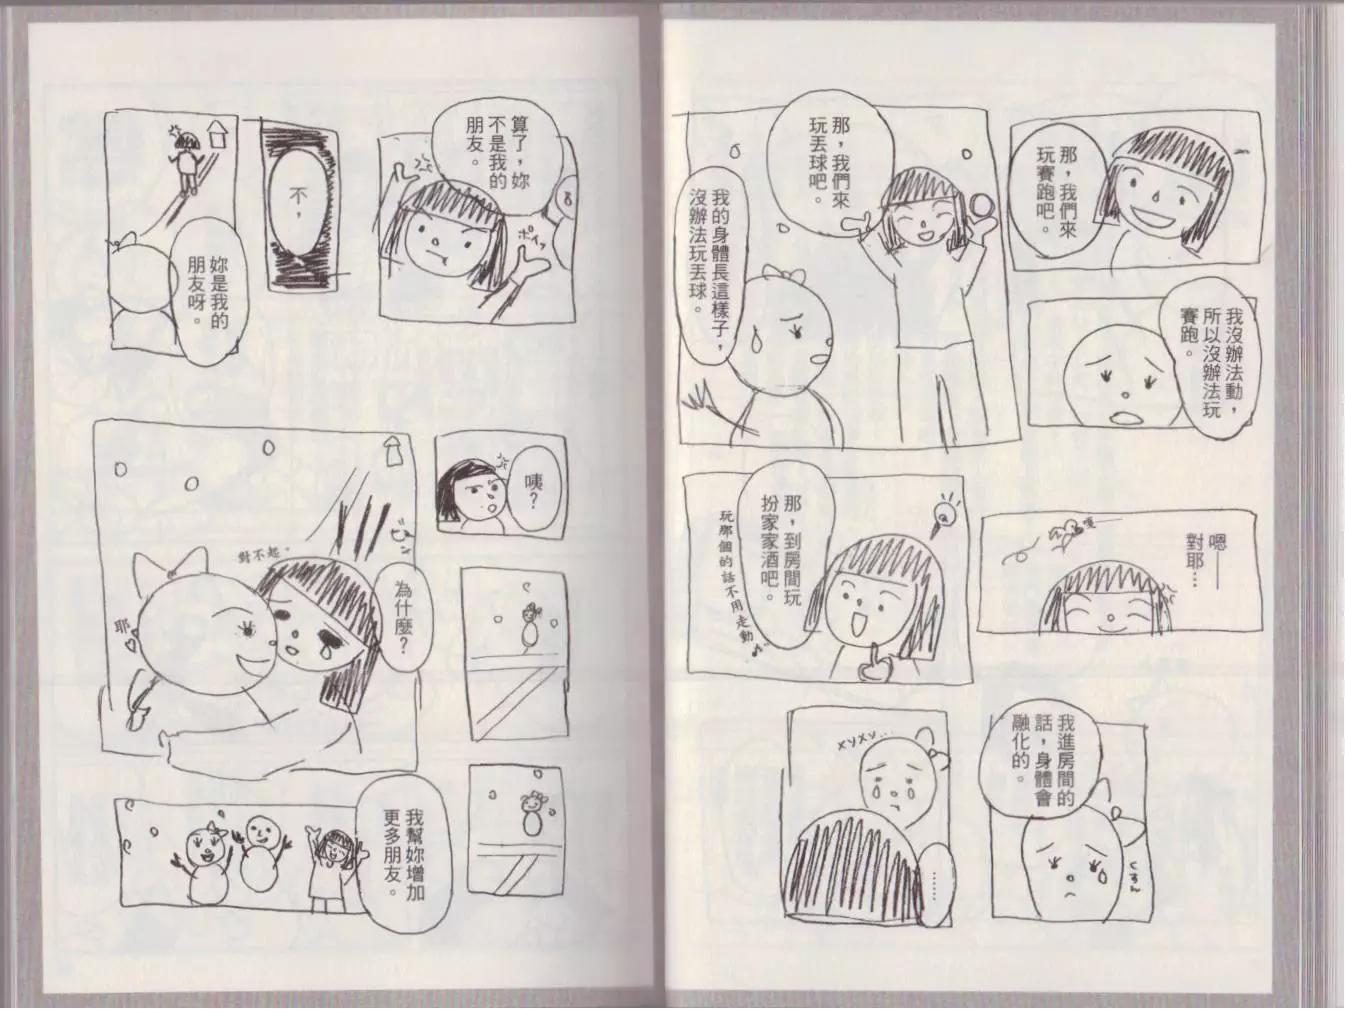 那，我們來
玩賽跑吧。
我沒辦法動，
所以沒辦法玩
賽跑。
那，我們來
玩丟球吧。
我的身體長這樣子，
沒辦法玩丟球。
嗯——
對耶…
那，到房間玩
扮家家酒吧。
玩那個的話不用走動♪
我進房間的
話，身體會
融化的。
くすん
メソメソ…
……
算了，妳
不是我的
朋友。
ポイッ
不，
妳是我的
朋友呀。
咦？
為什麼？
對不起。
耶
我幫妳增加
更多朋友。